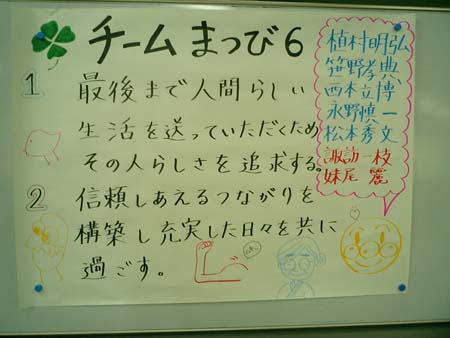 チームまつび6
1 最後まで人間らしい
生活を送っていただくため
その人らしさを追求する。
2 信頼しあえるつながりを
構築し充実した日々を共に
過ごす。
植村明弘
笹野孝典
西本立博
永野慎一
松本秀文
諏訪一枝
妹尾麗